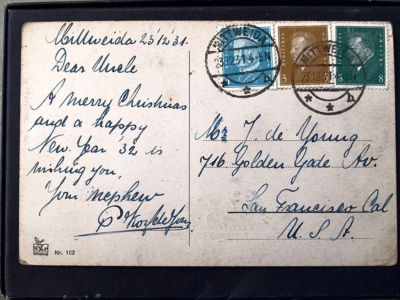 Mittweida 23/12 31.
Dear Uncle
A merry Christmas
and a happy
New Year '32 is
wishing you,
Your nephew
P.
Nr. 102
MITTWEIDA
23.12.31.4-5N
MITTWEIDA
23.12.31
5
8
Mr J. de Young
716 Golden Gade Av.
San Francisco Cal
U. S. A.